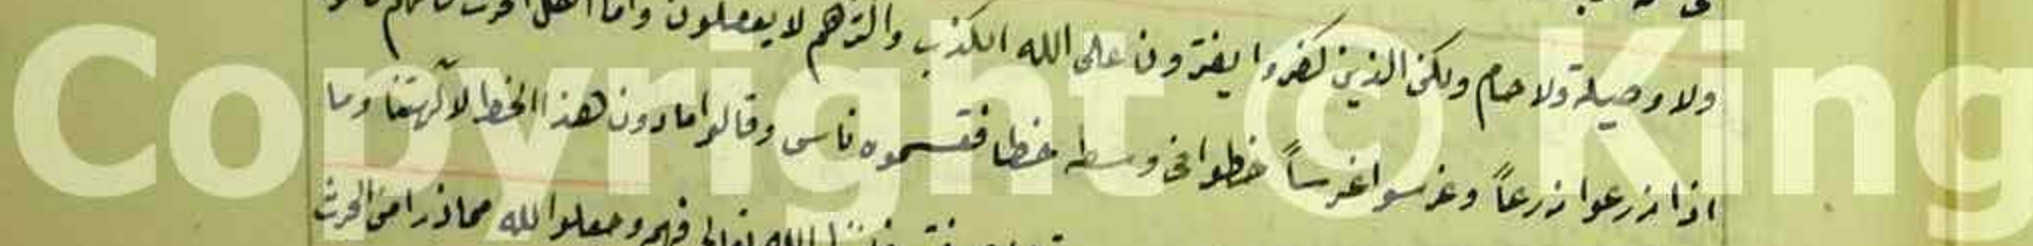 ولا وصيلة ولا حام ولكن الذين كفروا يفترون على الله الكذب واكثرهم لا يعقلون واما اهل الحرث
اذا زرعوا زرعاً وغرسوا غرساً خطوا فى وسطه خطا فقسموه وقالوا ما دون هذا الخط لآلهتنا وما
الله تعالى فيهم وجعلوا لله مما ذرا من الحرث
Copyright © King